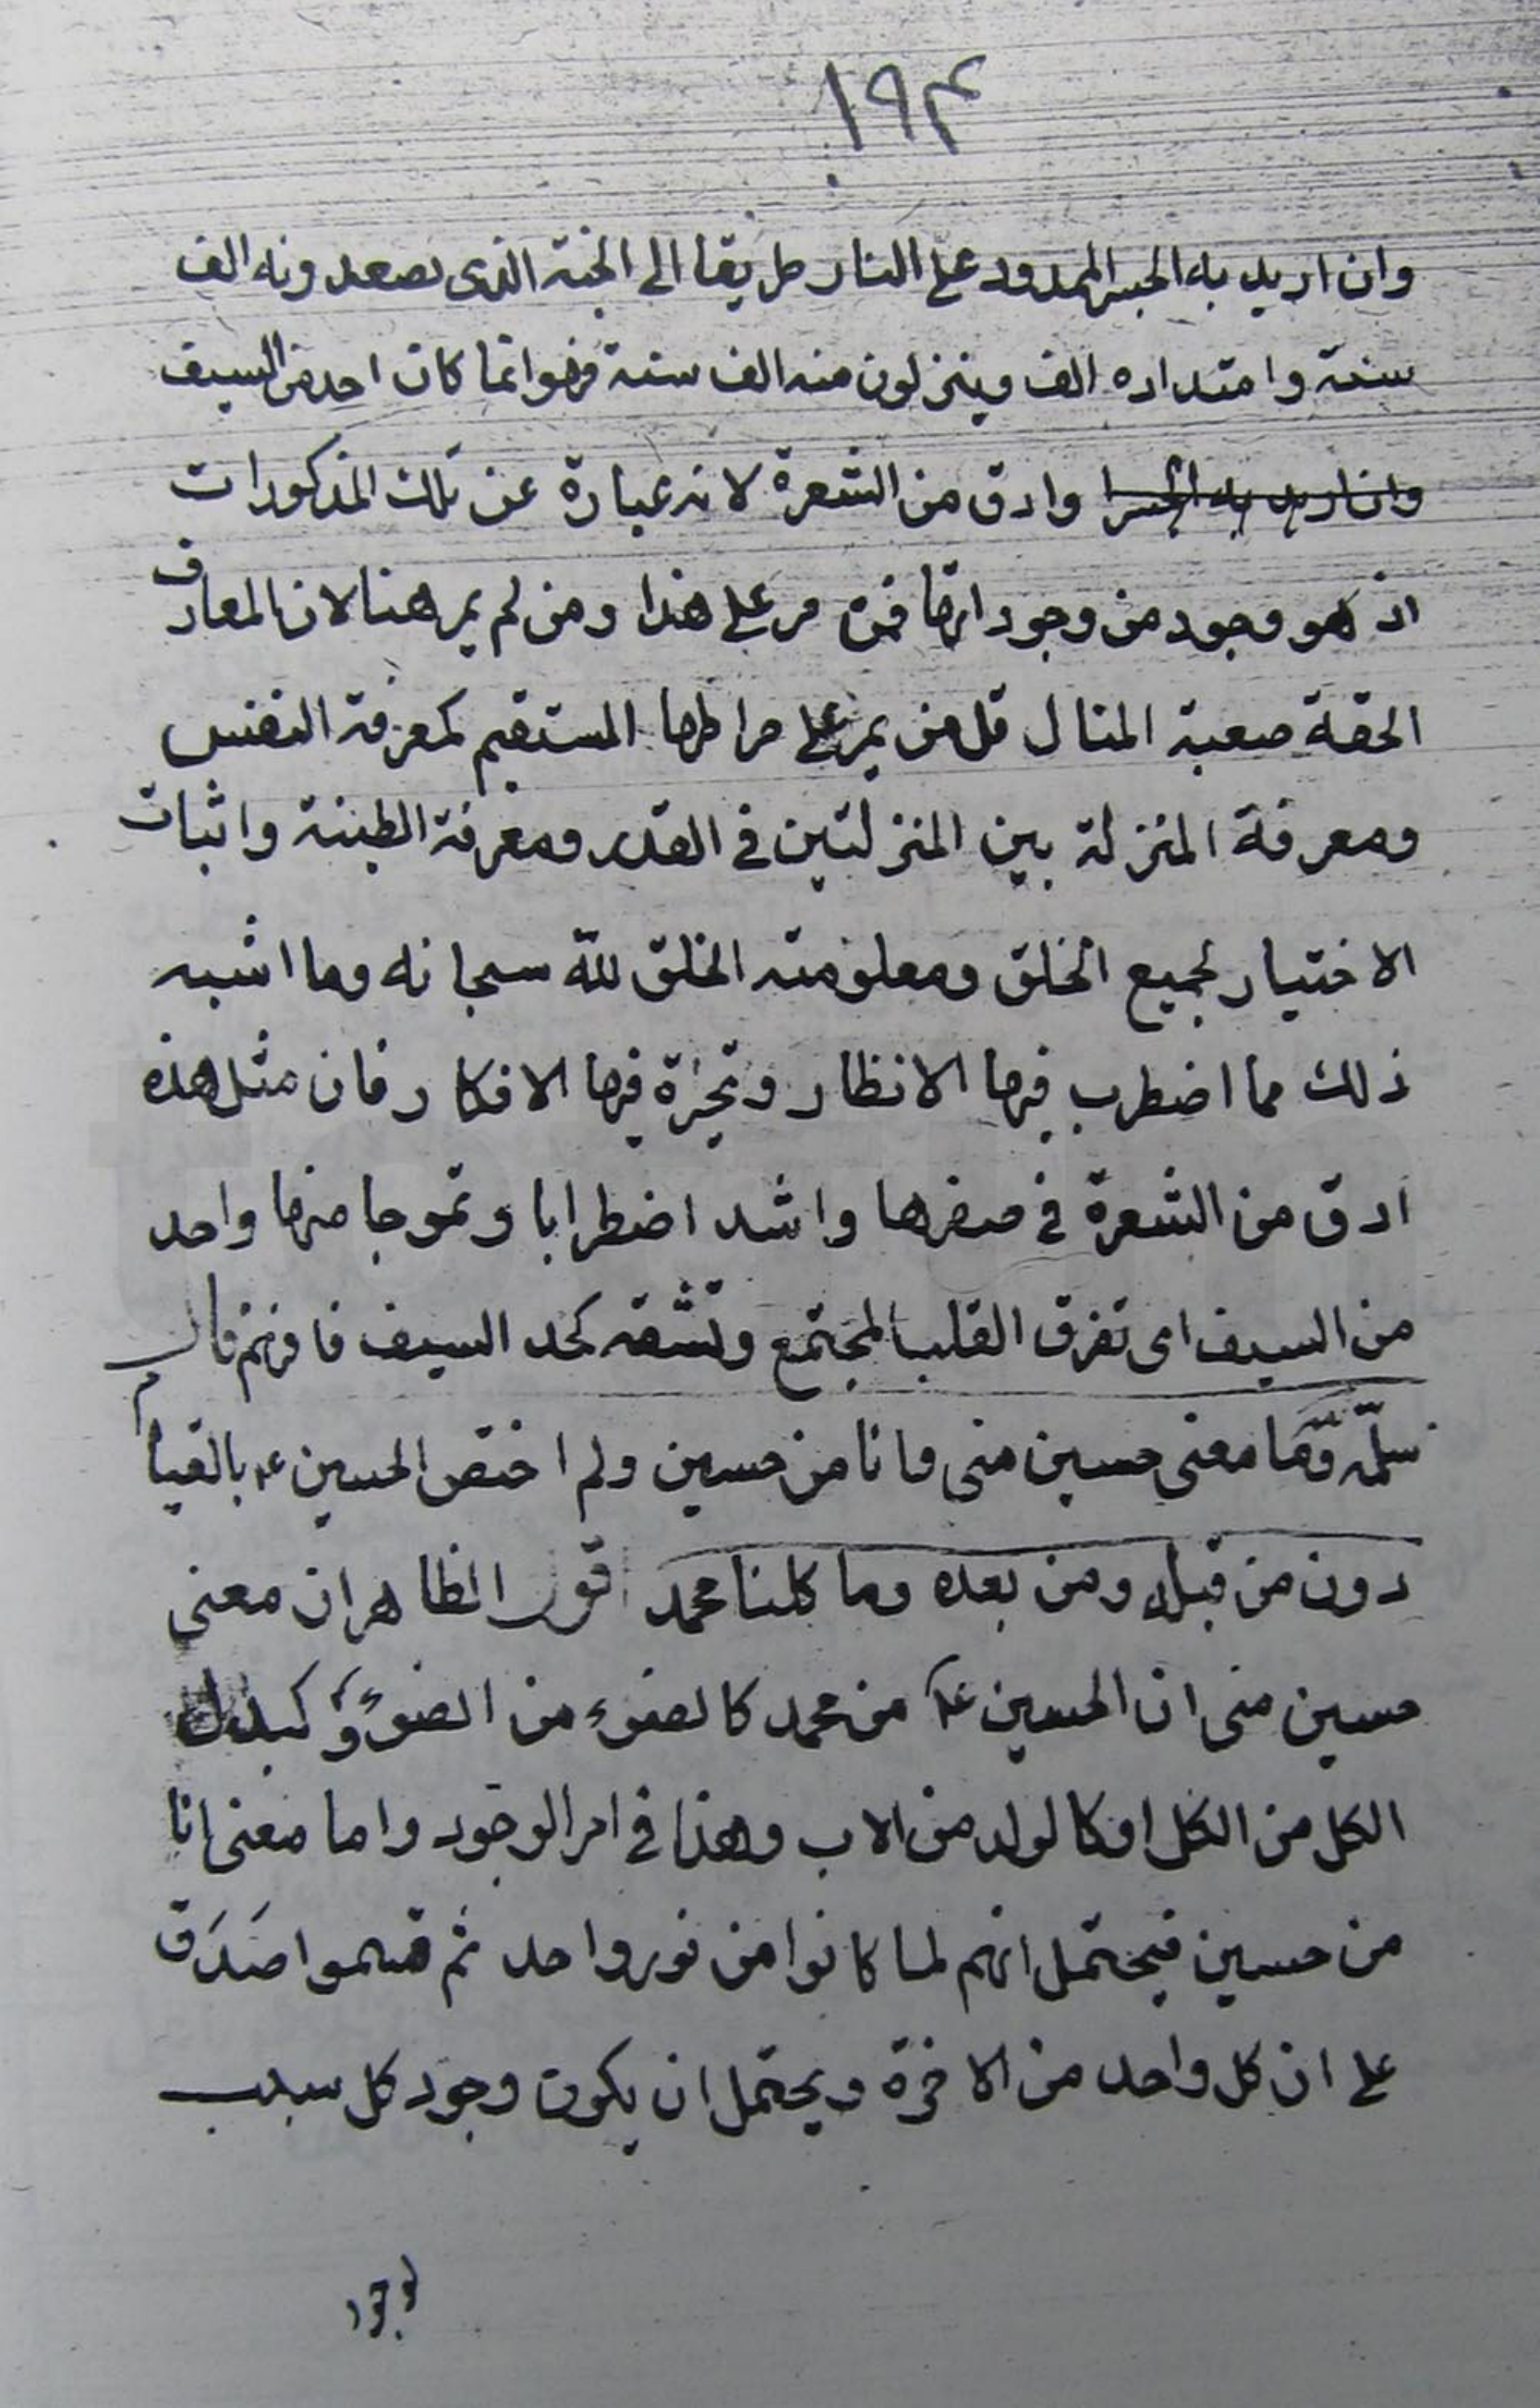 ١٩٣
وان اريد به الجسر الممدود على النار طريقا الى الجنة الذى يصعدونه الف
سنة وامتداده الف وينزلون منه الف سنة فهو انما كان احد من السيف
وان اريد به الجسرا وادق من الشعرة لانه عبارة عن تلك المذكورات
اذ هو وجود من وجوداتها فمن مر على هذا ومن لم يمر هنا لان المعارف
الحقة صعبة المنال قل من يمر على صراطها المستقيم كمعرفة النفس
ومعرفة المنزلة بين المنزلتين فى القدر ومعرفة الطينة واثبات
الاختيار لجميع الخلق ومعلومته الخلق لله سبحانه وما اشبه
ذلك مما اضطرب فيها الانظار وتحيرة فيها الافكار فان مثل هذه
ادق من الشعرة فى صغرها واشد اضطرابا وتموجا منها واحد
من السيف اى تفرق القلب المجتمع وتشقه كحد السيف فافهم قال
سلمه الله ما معنى حسين منى وانا من حسين ولم اختص الحسين ع بالقيام
دون من قبله ومن بعده وما كلنا محمد اقول الظاهر ان معنى
حسين منى ان الحسين ع من محمد كالضوء من الضوء وكبدل
الكل من الكل او كالولد من الاب وهذا فى امر الوجود واما معنى انا
من حسين فيحتمل انهم لما كانوا من نور واحد ثم قسموا صَدَق
على ان كل واحد من الاخرة ويحتمل ان يكون وجود كل سبب
لوجود